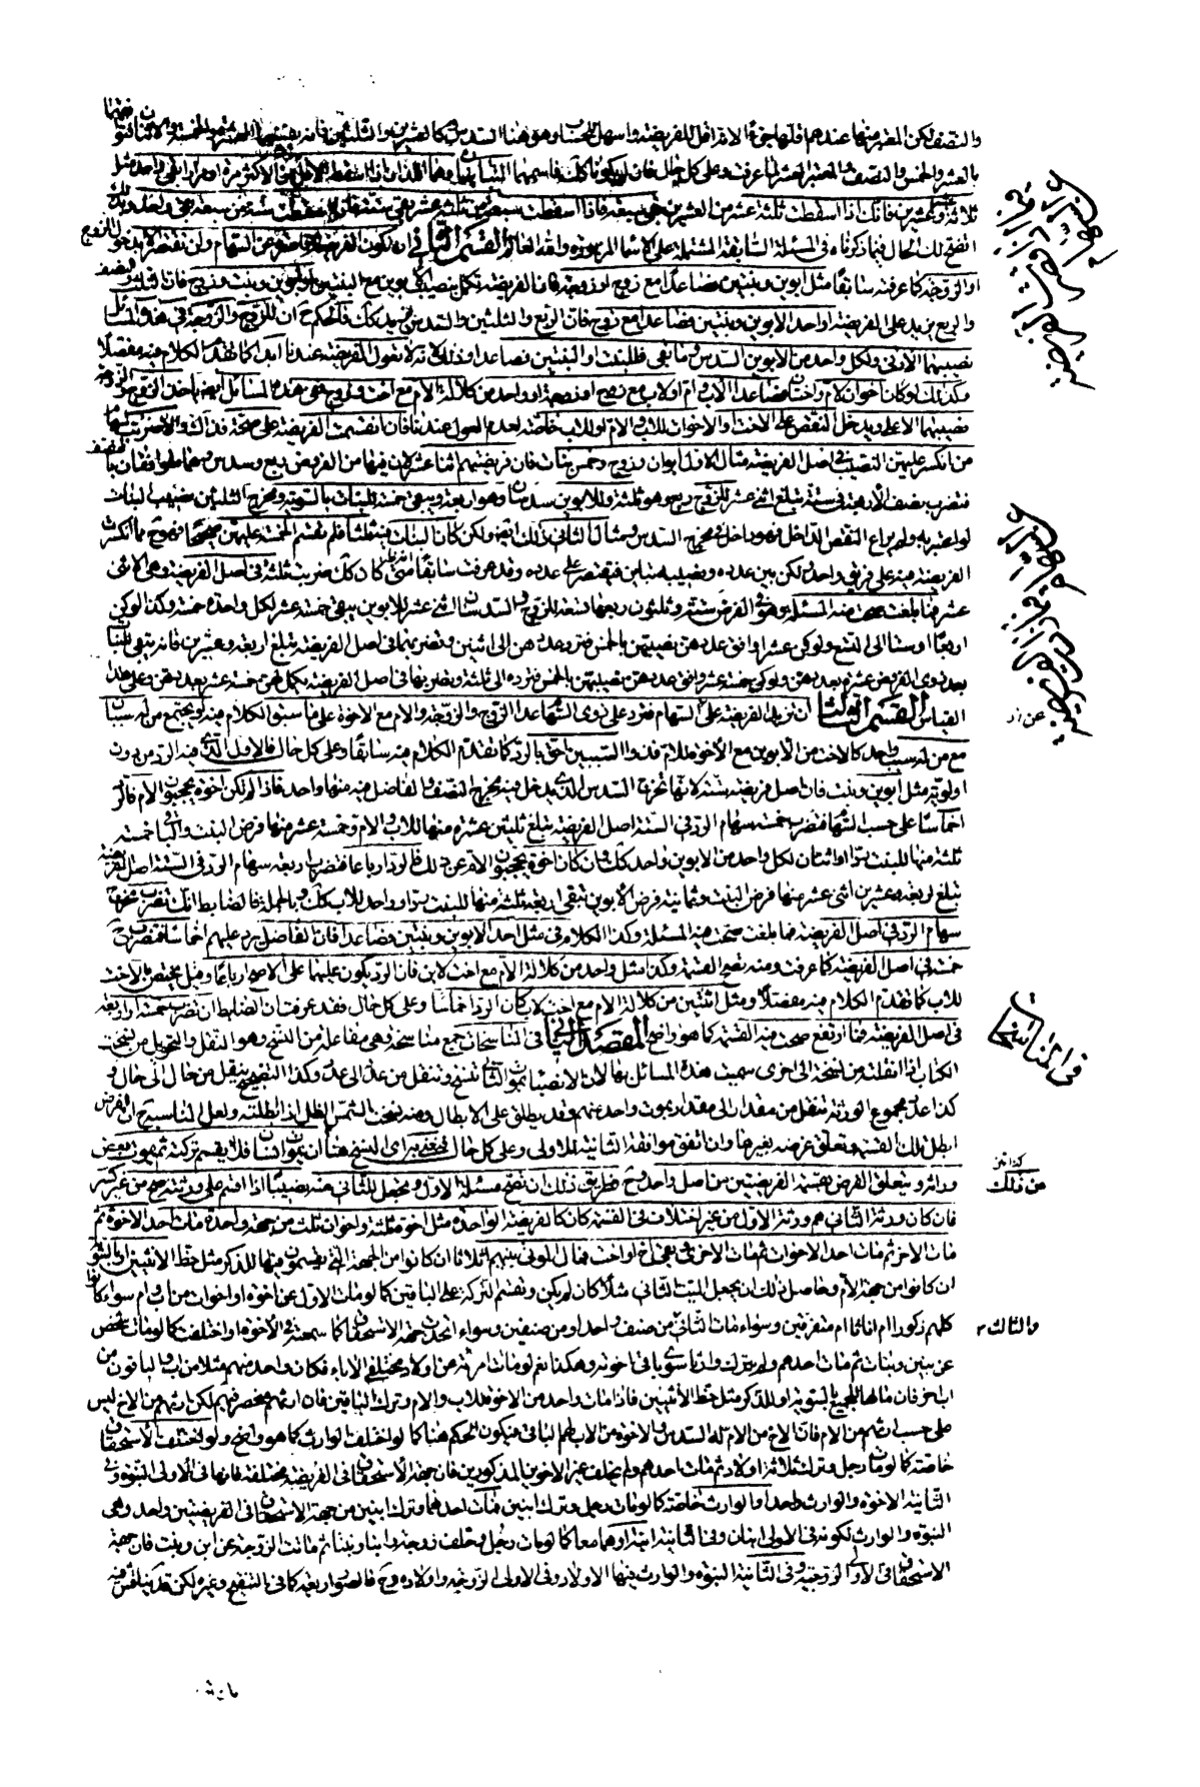 والنصف لكن المعتبر منها عندهم اقلها جزءا لانه اقل للفريضة واسهل للحساب وهو هنا السدس كالعشرين والثلثين فانه
بالعشر والخمس والنصف والمعتبر العشر لما عرفت وعلى كل حال فان لم يكونا كذلك فاسمهما المتباينان وهما اللذان اذا اسقط الاقل من الاكثر مرة او مرارا بقى واحد مثل
ثلاثة عشر وعشرين فانك اذا اسقطت ثلثة عشر من العشرين بقى سبعة فاذا اسقطت سبعة من ثلثة عشر بقى ستة فاذا اسقطت ستة من سبعة بقى واحد
اتضح لك الحال فيما ذكرناه في المسئلة السابقة المشتملة على الاقسام المزبورة والله العالم القسم الثاني ان تكون الفريضة قاصرة عن السهام ولن تقصر الا بدخول الزوج
او الزوجة كما عرفته سابقا مثل ابوين وبنتين فصاعدا مع زوج او زوجة فان الفريضة تكمل بنصيب الابوين مع البنتين او ابوين وبنت وزوج فان
والربع يزيد على الفريضة او احد الابوين وبنتين فصاعدا مع زوج فان الربع والثلثين والسدس يزيد كذلك فالحكم ح ان للزوج والزوجة في هذه المسائل
نصيبهما الادنى ولكل واحد من الابوين السدس وما يبقى فللبنت او البنتين فصاعدا وذلك لانه لا تعول الفريضة عندنا ابدا كما تقدم الكلام فيه مفصلا
وكذلك لو كان اخوان لام واختان فصاعدا لاب وام او لاب مع زوج او زوجة او واحد من كلالة الام مع اخت وزوج ففي هذه المسائل ايضا ياخذ الزوج او الزوجة
نصيبهما الاعلى ويدخل النقص على الاخت او الاخوات للاب والام او للاب خاصة لعدم العول عندنا فان انقسمت الفريضة على صحة فذاك والا ضربت سهام
من انكسر عليهن النصيب في اصل الفريضة مثال الاول ابوان وزوج وخمس بنات فان فريضتهم اثنا عشر لان فيها من الفروض ربع وسدس وهما متوافقان بالنصف
فتضرب نصف الاربعة في ستة تبلغ اثنى عشر للزوج ربعه وهو ثلثة وللابوين سدسان وهو اربعة ويبقى خمسة للبنات بالسوية ومخرج الثلثين نصيب البنات
لو اعتبر به ولم يراع النقص الداخل فهو داخل في مخرج السدس ومثال الثاني ذلك ايضا ولكن كان البنات فيه ثلثا فلم تقسم الخمسة عليهن صحيحا فهو ح مما انكسرت
الفريضة فيه على فريق واحد لكن بين عدده ونصيبه تباين فتقتصر على عدده وقد عرفت سابقا انه متى كان كذلك ضربت ثلثة في اصل الفريضة وهي الاثنى
عشر فما بلغت صحت منه المسئلة وهو في الفرض ستة وثلثون ربعها تسعة للزوج والسدسان اثنى عشر للابوين يبقى خمسة عشر لكل واحدة خمسة وكذا لو كن
اربعا او ستا الى التسع ولو كن عشرا وافق عددهن نصيبهن بالخمس فترد عددهن الى اثنين وتضربهما في اصل الفريضة تبلغ اربعة وعشرين فانه يبقى للبنات
بعد ذوى الفروض عشرة بعددهن ولو كن خمسة عشر وافق عددهن نصيبهن بالخمس فترده الى ثلثة وتضربها في اصل الفريضة يكمل لهن خمسة عشر بعددهن وعلى هذا
القياس القسم الثالث ان تزيد الفريضة على السهام فترد على ذوى السهام عدا الزوج والزوجة والام مع الاخوة على ما سبق الكلام فيه او يجتمع من له سببان
مع من له سبب واحد كالاخت من الابوين مع الاخوة للام فذو السببين احق بالرد كما تقدم الكلام فيه سابقا وعلى كل حال فالاول الذي فيه الرد من دون
اولوية مثل ابوين وبنت فان اصل فريضة ستة لانها مخرج السدس الذي يدخل فيه مخرج النصف والفاضل فيه منها واحد فاذا لم تكن اخوة يحجبون الام فالرد
اخماسا على حسب السهام فتضرب خمسة سهام الرد في الستة اصل الفريضة تبلغ ثلثين عشرة منها للاب والام وخمسة عشر منها فرض البنت والباقي خمسة
ثلثة منها للبنت ردا واثنان لكل واحد من الابوين واحد كذلك وان كان اخوة يحجبون الام عن ذلك فالرد ارباعا فتضرب اربعة سهام الرد في الستة اصل الفريضة
تبلغ اربعة وعشرين اثنى عشر منها فرض البنت وثمانية فرض الابوين تبقى اربعة ثلثة منها للبنت ردا وواحد للاب كذلك وبالجملة فالضابط انك تضرب مخرج
سهام الرد في اصل الفريضة فما بلغت صحت منه المسئلة وكذا الكلام في مثل احد الابوين وبنتين فصاعدا فان الفاضل يرد عليهم اخماسا فتضرب
خمسة في اصل الفريضة كما عرفت ومنه تصح القسمة وكذا مثل واحد من كلالة الام مع اخت لاب فان الرد يكون عليهما على الاصح ارباعا وقيل يختص بالاخت
للاب كما تقدم الكلام فيه مفصلا ومثل اثنين من كلالة الام مع اخت لاب كان الرد اخماسا وعلى كل حال فقد عرفت ان الضابط ان تضرب خمسة او اربعة
في اصل الفريضة فما ارتفع صحت منه القسمة كما هو واضح المقصد الثاني في المناسخات جمع مناسخة وهي مفاعلة من النسخ وهو النقل والتحويل من نسخت
الكتاب اذا نقلته من نسخة الى اخرى سميت هذه المسائل بها لان الانصباء بموت الثاني تنسخ وتنقل من عدد الى عدد وكذا التصحيح ينقل من حال الى حال و
كذا عدد مجموع الورثة تنقل من مقدار الى مقدار بموت واحد منهم وقد يطلق على الابطال ومنه نسخت الشمس الظل اذا ابطلته ولعل المناسبة ح ان الفرض
ابطل تلك القسمة وتعلق غرضه بغيرها وان اتفق موافقة الثانية للاولى وعلى كل حال النسخ هنا ان يموت انسان فلا تقسم تركته ثم يموت بعض
وراثه ويتعلق الغرض بقسمة الفريضتين من اصل واحد وح فطريق ذلك ان تصح مسئلة الاول وتجعل للثاني منه نصيبا اذا قسم على ورثته صح من غير كسر
فان كان ورثة الثاني هم ورثة الاول من غير اختلاف في القسمة كان كالفريضة الواحدة مثل اخوة ثلثة واخوات ثلث من جهة واحدة مات احد الاخوة ثم
مات الاخر ثم مات احد الاخوات ثم مات الاخرى وبقى اخ واخت فمال الموتى بينهم اثلاثا ان كانوا من الجهة التي يقسمون فيها للذكر مثل حظ الانثيين او بالسوية
ان كانوا من جهة الام وحاصل ذلك ان يجعل الميت الثاني مثلا كان لم يكن وتقسم التركة على الباقين كما لو مات الاول عن اخوة او اخوات من اب وام سواء كانوا
كلهم ذكورا ام اناثا ام متفرقين وسواء مات الثاني من صنف واحد او من صنفين وسواء اتحدت جهة الاستحقاق كما سمعته والاخوة او اختلفت كما لو مات شخص
عن بنين وبنات ثم مات احدهم ولم يترك وارثا سوى باقي اخوته وهكذا نعم لو ماتت امرئة من اولاد مختلفي الاباء فكان واحد منهم مثلا من اب والباقون من
اب اخر فان مالها للجميع بالسوية او للذكر مثل حظ الانثيين فاذا مات واحد من الاخوة للاب والام وترك الباقين فان ارثهم منحصر فيهم لكن ارثهم من الاخ ليس
على حسب ارثهم من الام فان الاخ من الام له السدس والاخوة من الاب لهم الباقي فيكون الحكم هنا كما لو اختلف الوارث كما هو واضح ولو اختلف الاستحقاق
خاصة كما لو مات رجل وترك ثلاثة اولاد ثم مات احدهم ولم يخلف غير الاخوين المذكورين فان جهة الاستحقاق في الفريضة مختلفة فانها في الاولى البنوة وفي
الثانية الاخوة والوارث واحد او الوارث خاصة كما لو مات رجل وترك ابنين فمات احدهما وترك ابنين من جهة الاستحقاق في الفريضتين واحد وهي
البنوة والوارث لكونه في الاولى ابنان وفي الثانية ابنه او هما معا كما لو مات رجل وخلف زوجة وابنا وبنتا ثم ماتت الزوجة عن ابن وبنت فان جهة
الاستحقاق في الاولى الزوجية وفي الثانية البنوة والوارث فيها الاولاد وفي الاولى الزوجة واولاده وح فالصور اربعة كما في التنقيح وغيره لكن قد يناقش فيه
في المناسخات
كذا تين
من ذلك
والثالث